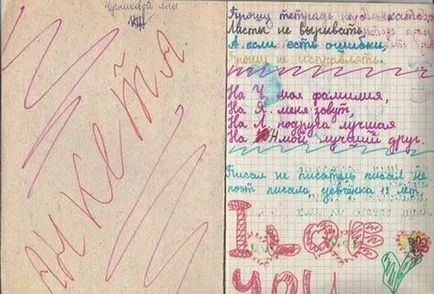 Черниковой Яны
Анкета
Прошу тетрадь не
Листы не вырывать
А если есть ошибки
Прошу не исправлять.
На Ч. моя фамилия,
На Я. меня зовут,
На Л. подруга лучшая
На Н мой лучший друг.
Писал не писатель писал не
поэт писала девчёнка 12 лет.
I Love
you